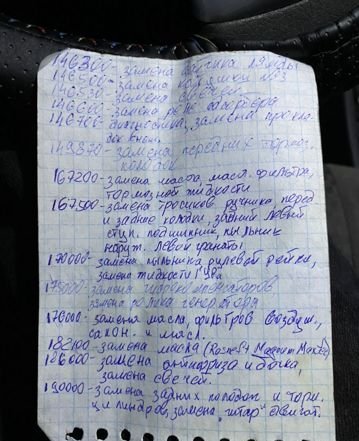 146300- замена датчика лямбды
146500- замена катушки №3
146530- замена свечей
146600- замена реле стартера
146700- диагностика, замена прокла-
док
149820- замена передних тормоз.
колодок
167200- замена масла, масл. фильтра,
тормозной жидкости
167500- замена тросиков ручника, перед
и задние колодки, задний левый
ступ. подшипник, пыльник
наруж. левой гранаты
170000- замена пыльника рулевой рейки,
замена жидкости ГУРа
175000- замена гидрокомпенсаторов
замена ролика генератора
176000- замена масла, фильтров воздуш.,
салон. и масл.
182100- замена масла (Rosneft Magnum Maxtec)
186000- замена антифриза и бачка,
замена свечей.
190000- замена задних колодок и торм.
цилиндров, замена "гитар"